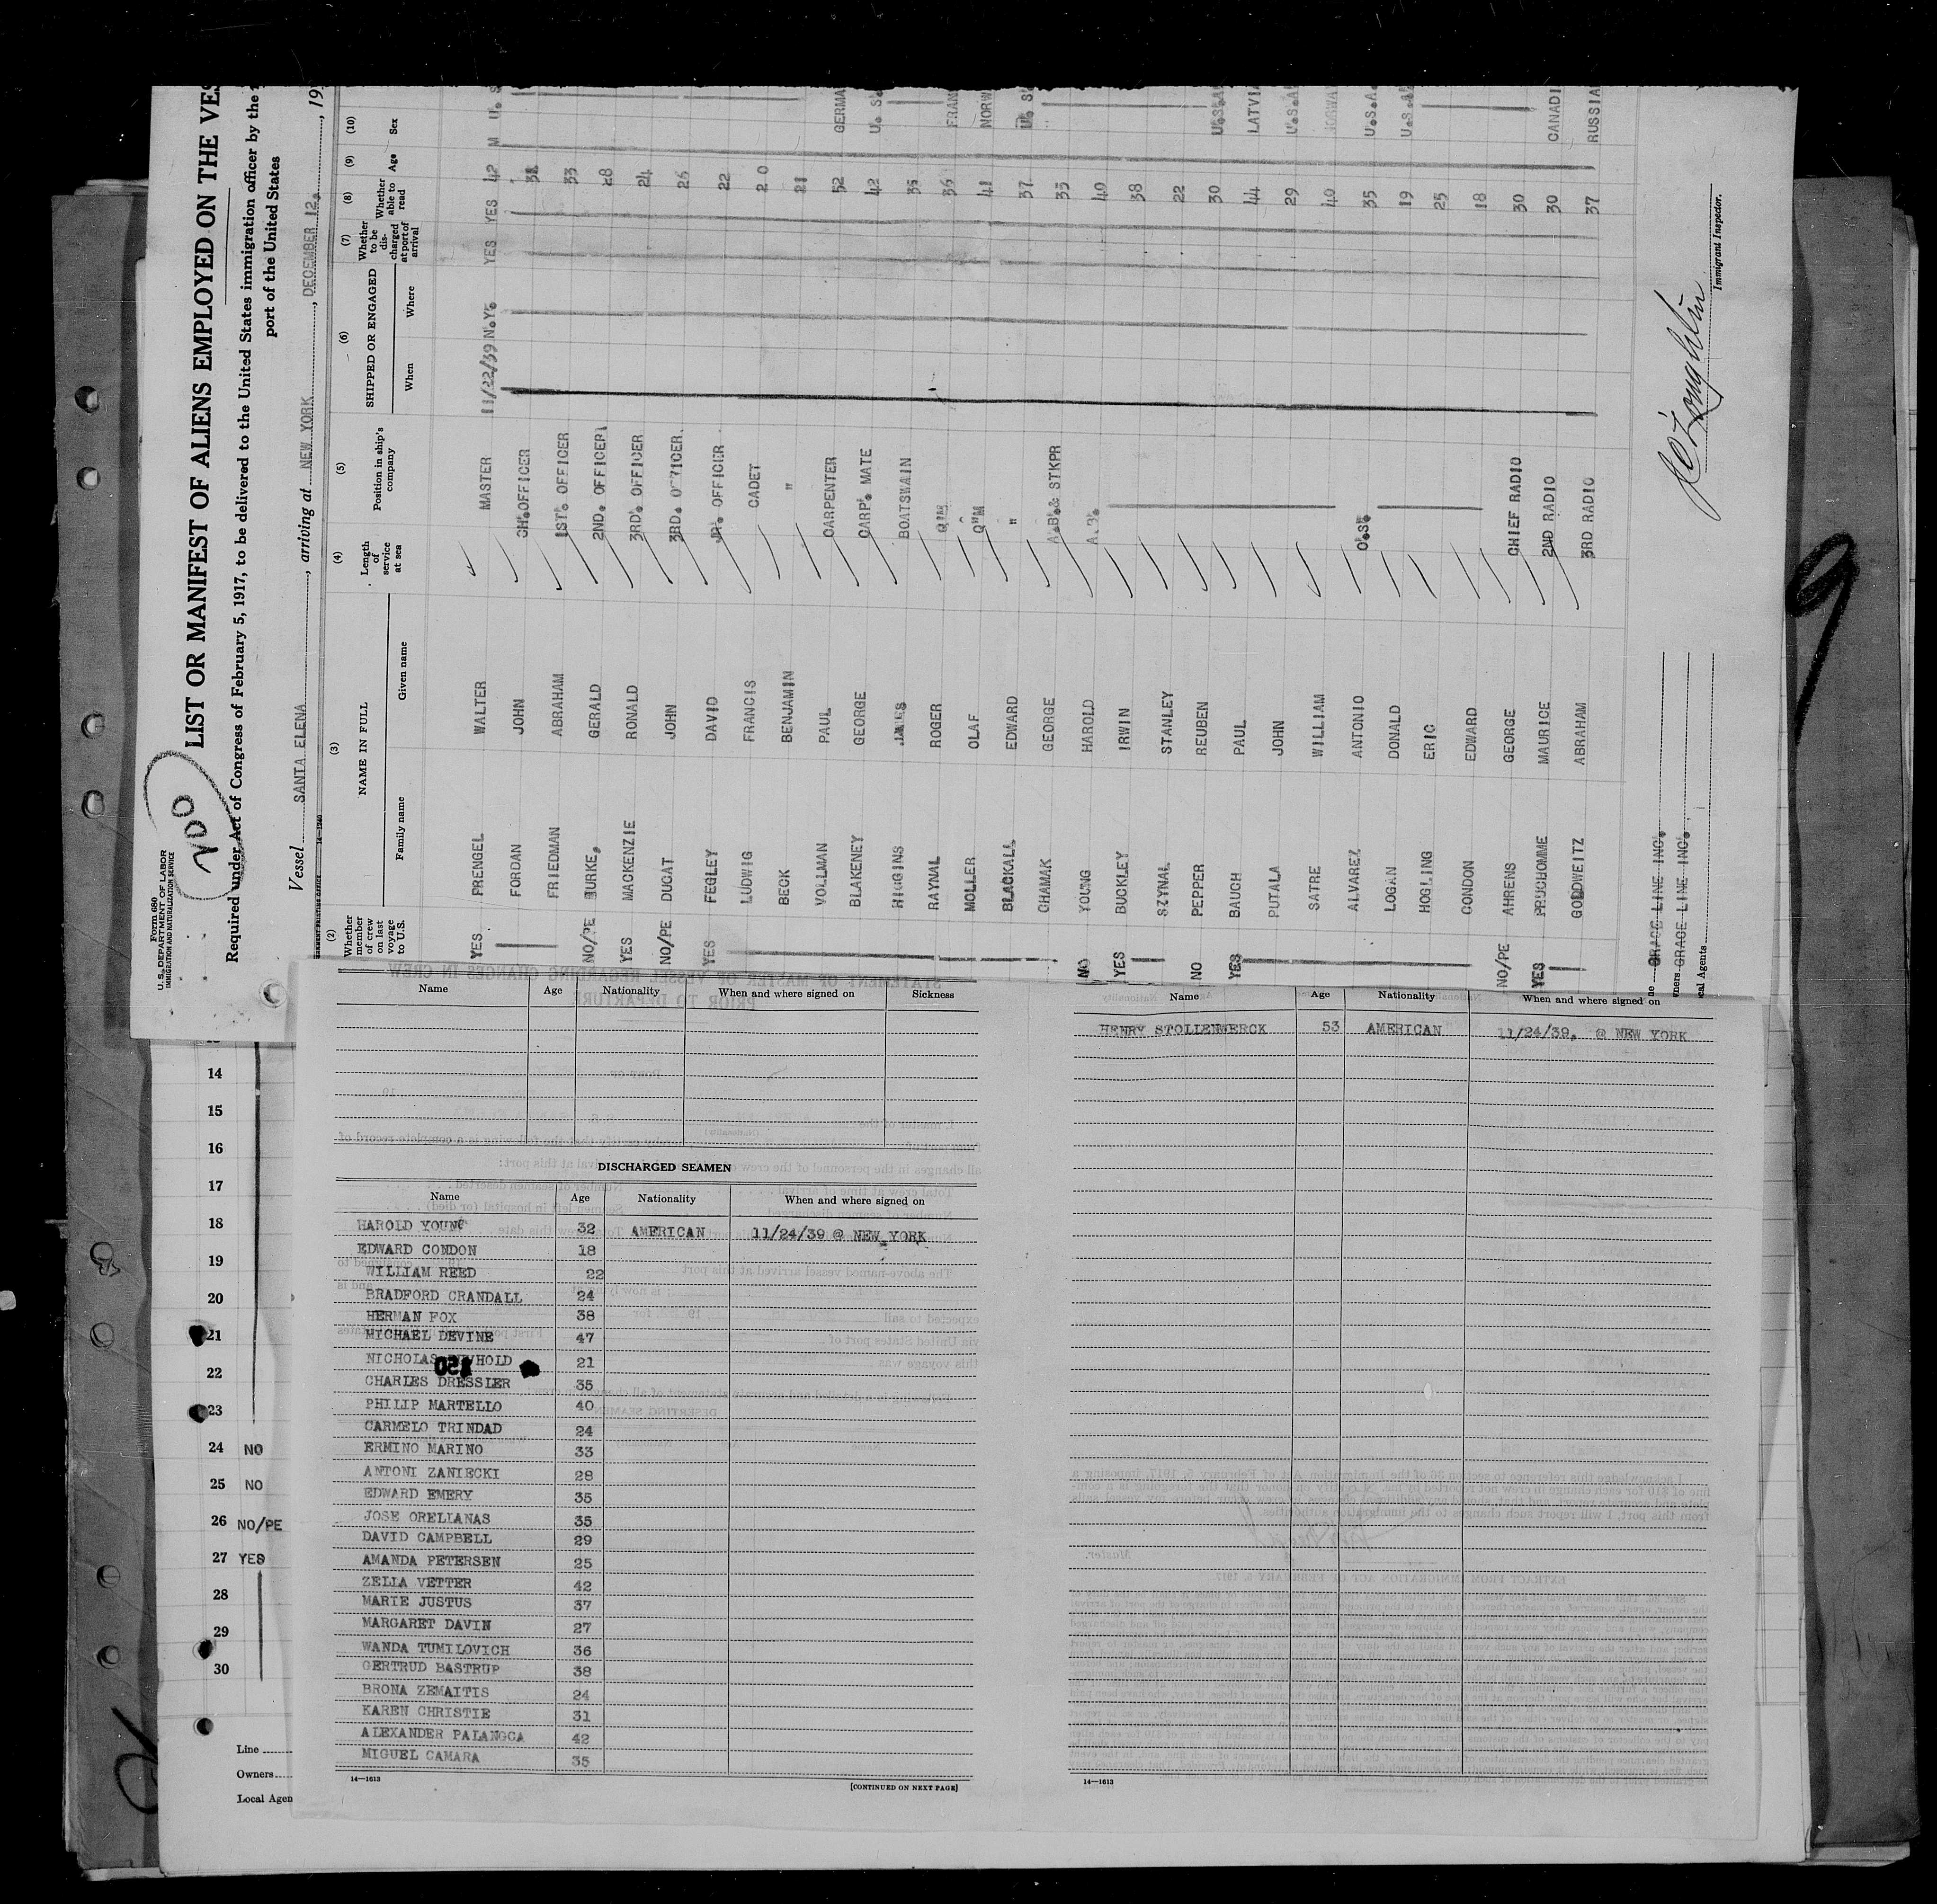 Form 680
U. S. DEPARTMENT OF LABOR
IMMIGRATION AND NATURALIZATION SERVICE
LIST OR MANIFEST OF ALIENS EMPLOYED ON THE VES
Required under Act of Congress of February 5, 1917, to be delivered to the United States immigration officer by the
port of the United States
Vessel SANTA ELENA, arriving at NEW YORK, DECEMBER 12, 19
(2) (3) (4) (5) (6) (7) (8) (9) (10)
Whether member of crew on last voyage to U.S.
NAME IN FULL
Family name Given name
Length of service at sea
Position in ship's company
SHIPPED OR ENGAGED
When Where
Whether to be discharged at port of arrival
Whether able to read
Age
Sex
YES PRENGEL WALTER MASTER 11/22/39 N.Y. YES YES 42 M U. S
FORDAN JOHN CH.OFFICER
FRIEDMAN ABRAHAM 1ST. OFFICER 33
NO/PE BURKE, GERALD 2ND. OFFICER 28
YES MACKENZIE RONALD 3RD. OFFICER 24
NO/PE DUCAT JOHN 3RD. OFFICER. 26
YES FEGLEY DAVID JR. OFFICER 22
LUDWIG FRANCIS CADET 20
BECK BENJAMIN " 21
VOLLMAN PAUL CARPENTER 52 GERMA
BLAKENEY GEORGE CARP. MATE 42 U. S.
RIGGINS JAMES BOATSWAIN
RAYNAL ROGER Q"M 36 FRAN
MOLLER OLAF Q"M 41 NORW
BLACKALL EDWARD " 37 U. S
CHAMAK GEORGE A.B.& STKPR 33
NO YOUNG HAROLD A.B. 40
YES BUCKLEY IRWIN 38
SZYNAL STANLEY 22
NO PEPPER REUBEN 30 U.S.A
YES BAUCH PAUL 44 LATVIA
PUTALA JOHN 29 U.S.A
SATRE WILLIAM 40 NORWA
ALVAREZ ANTONIO O.S. 35 U.S.A.
LOGAN DONALD 19 U.S.A
HOGLING ERIC 25
CONDON EDWARD 18
NO/PE AHRENS GEORGE CHIEF RADIO 30
YES PRUCHOMME MAURICE 2ND RADIO 30 CANADI
GOLDWEITZ ABRAHAM 3RD RADIO 37 RUSSIA
GRACE LINE INC.
wners GRACE LINE INC.
cal Agents
Immigrant Inspector.
Name Age Nationality When and where signed on Sickness
DISCHARGED SEAMEN
Name Age Nationality When and where signed on
HAROLD YOUNG 32 AMERICAN 11/24/39 @ NEW YORK
EDWARD CONDON 18
WILLIAM REED 22
BRADFORD CRANDALL 24
HERMAN FOX 38
MICHAEL DEVINE 47
NICHOLAS 21
CHARLES DRESSLER 35
PHILIP MARTELLO 40
CARMELO TRINDAD 24
ERMINO MARINO 33
ANTONI ZANIECKI 28
EDWARD EMERY 35
JOSE ORELLANAS 35
DAVID CAMPBELL 29
AMANDA PETERSEN 25
ZELLA VETTER 42
MARIE JUSTUS 37
MARGARET DAVIN 27
WANDA TUMILOVICH 36
GERTRUD BASTRUP 38
BRONA ZEMAITIS 24
KAREN CHRISTIE 31
ALEXANDER PALANGCA 42
MIGUEL CAMARA 35
14—1613 [CONTINUED ON NEXT PAGE]
Name Age Nationality When and where signed on
HENRY STOLLENWERCK 53 AMERICAN 11/24/39, @ NEW YORK
14—1613
14
15
16
17
18
19
20
21
22
23
24 NO
25 NO
26 NO/PE
27 YES
28
29
30
Line
Owners
Local Agen
9